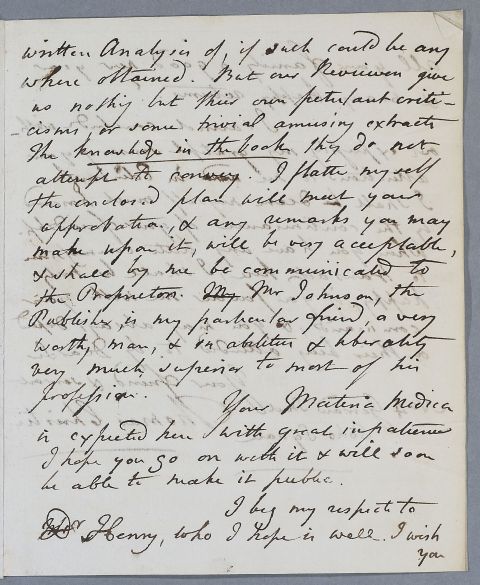 written Analysis of, if such could be any
where obtained. But our Reviewers give
us nothing but their own petulant criti-
cisms, or some trivial amusing extracts
The knowledge in the book they do not
attempt to convey. I flatter myself
the enclosed plan will meet your
approbation, & any remarks you may
make upon it, will be very acceptable,
& shall by me be communicated to
the Proprietors. My Mr Johnson, the
Publisher, is my particular friend, a very
worthy man, & in abilities & liberality
very much superior to most of his
profession.
Your Materia Medica
is expected here with great impatience
I hope you go on with it & will soon
be able to make it public.
I beg my respects to
Dr Henry, who I hope is well. I wish
you